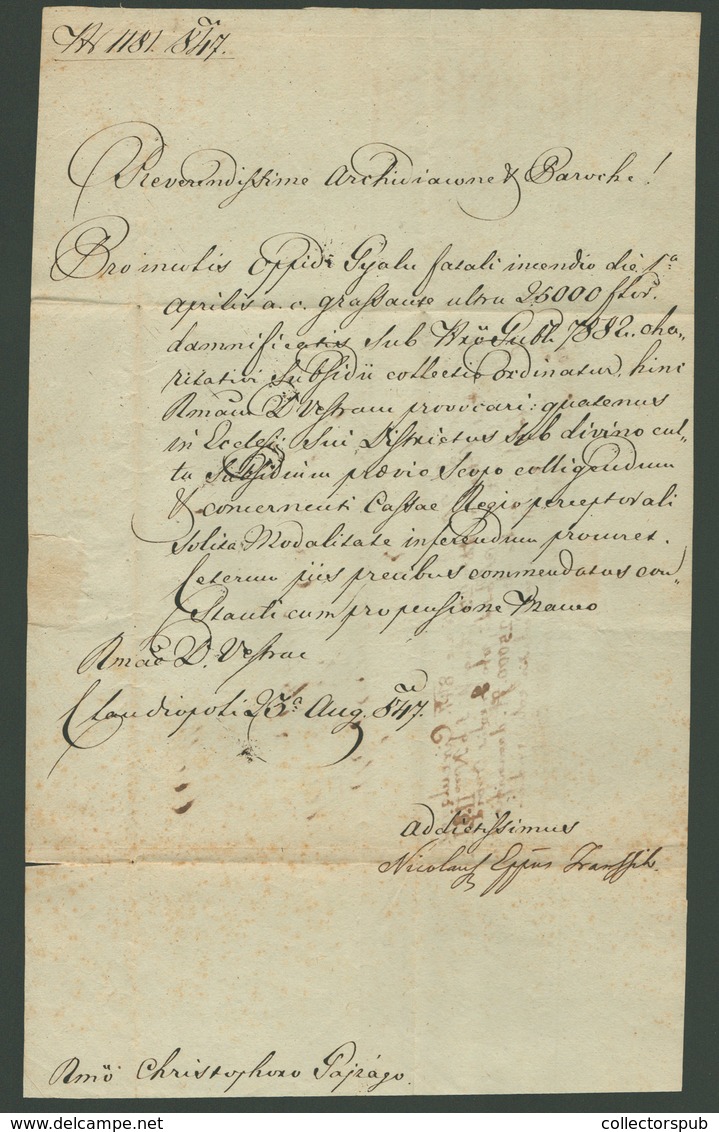 Nr 1181. 847.
Reverendissime Archidiacone & Paroche!
Pro incolis Oppidi Gyalu fatali incendio die 1ª
Aprilis a. c. grassante ultra 25000 ftor.
damnificatis sub Nrō Gubl 7882. cha-
ritativi Subsidii collectio ordinatur, hinc
Rmām D Vestram provocari: quatenus
in Ecclesi sui Districtus sub divino cul-
tu Subsidium praevio Scopo colligendum
& concernenti Cassae Regio perceptorali
solita Modalitate inferendum procuret.
Ceterum piis precibus commendatus con-
stanti cum propensione Maneo
Rmae D. Vestrae
Claudiopoli 23ª Aug. 847.
addictissimus
Nicolaus Eppus Transsilv.
Rmō Christophoro Pajzágo.
collectorspub